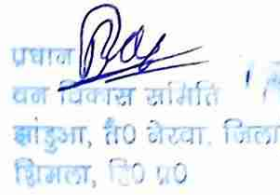 प्रधान
वन विकास समिति
झांडुआ, तै0 नेरवा, जिला
शिमला, हि0 प्र0